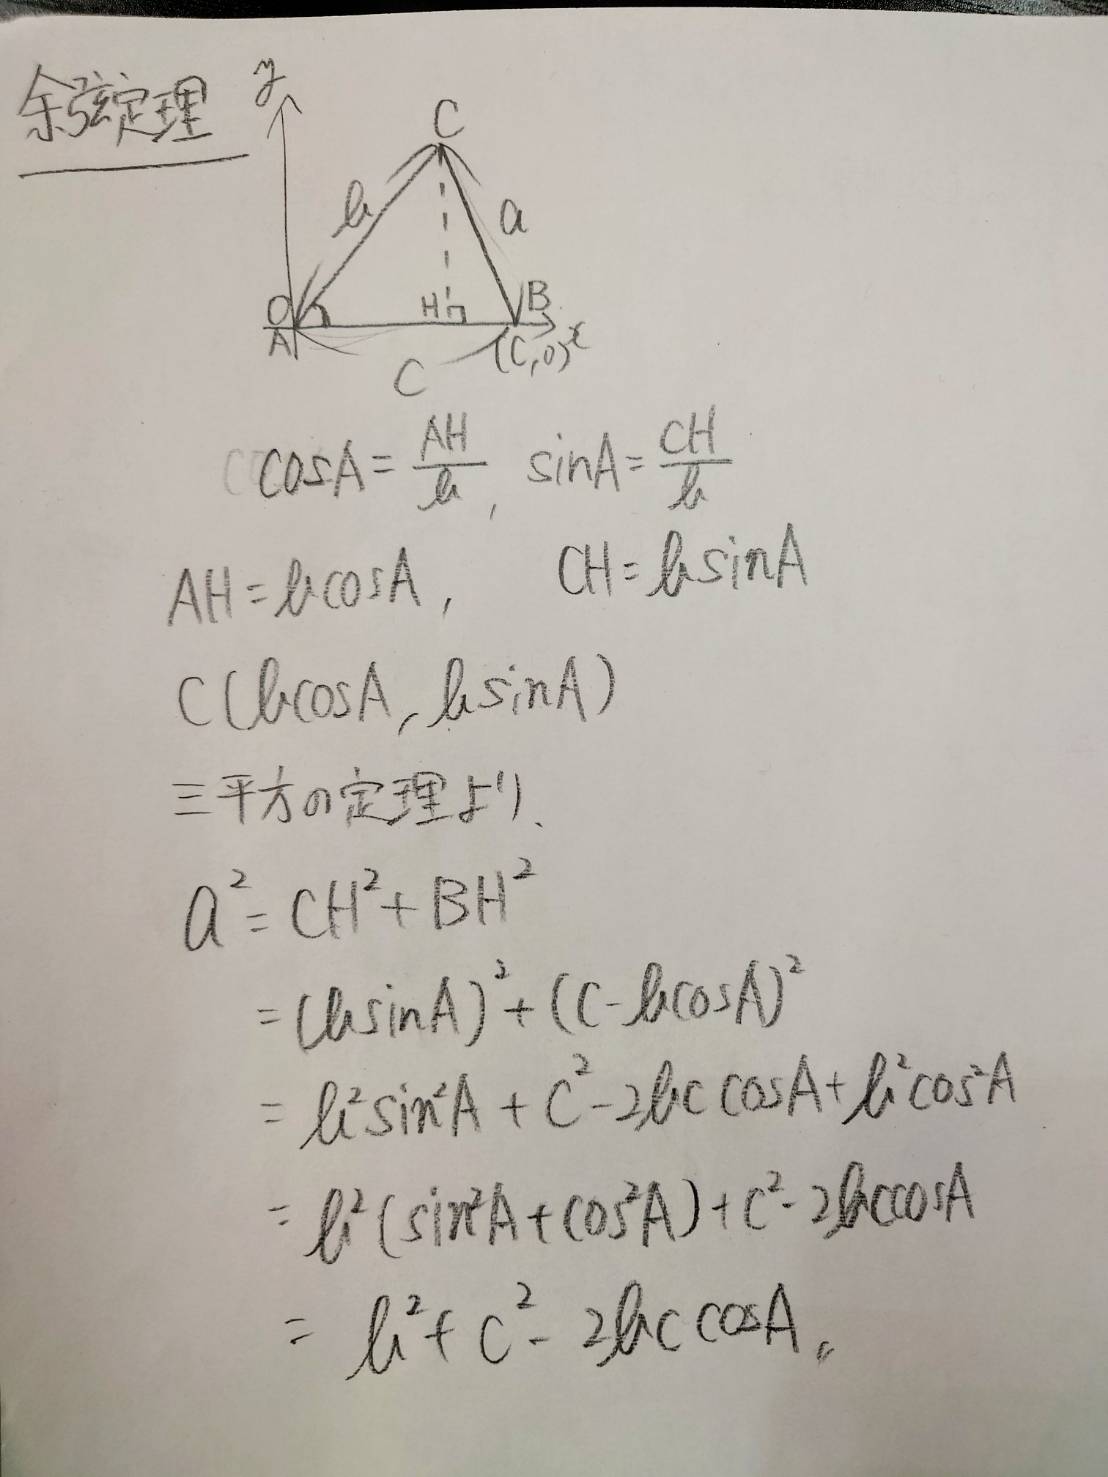 余弦定理
y
C
b
a
O
A
H
B
(C,0)
x
C
cosA = AH/b, sinA = CH/b
AH = bcosA, CH = bsinA
C(bcosA, bsinA)
三平方の定理より、
a² = CH² + BH²
= (bsinA)² + (C - bcosA)²
= b²sin²A + C² - 2bc cosA + b²cos²A
= b²(sin²A + cos²A) + C² - 2bccosA
= b² + C² - 2bc cosA 〃